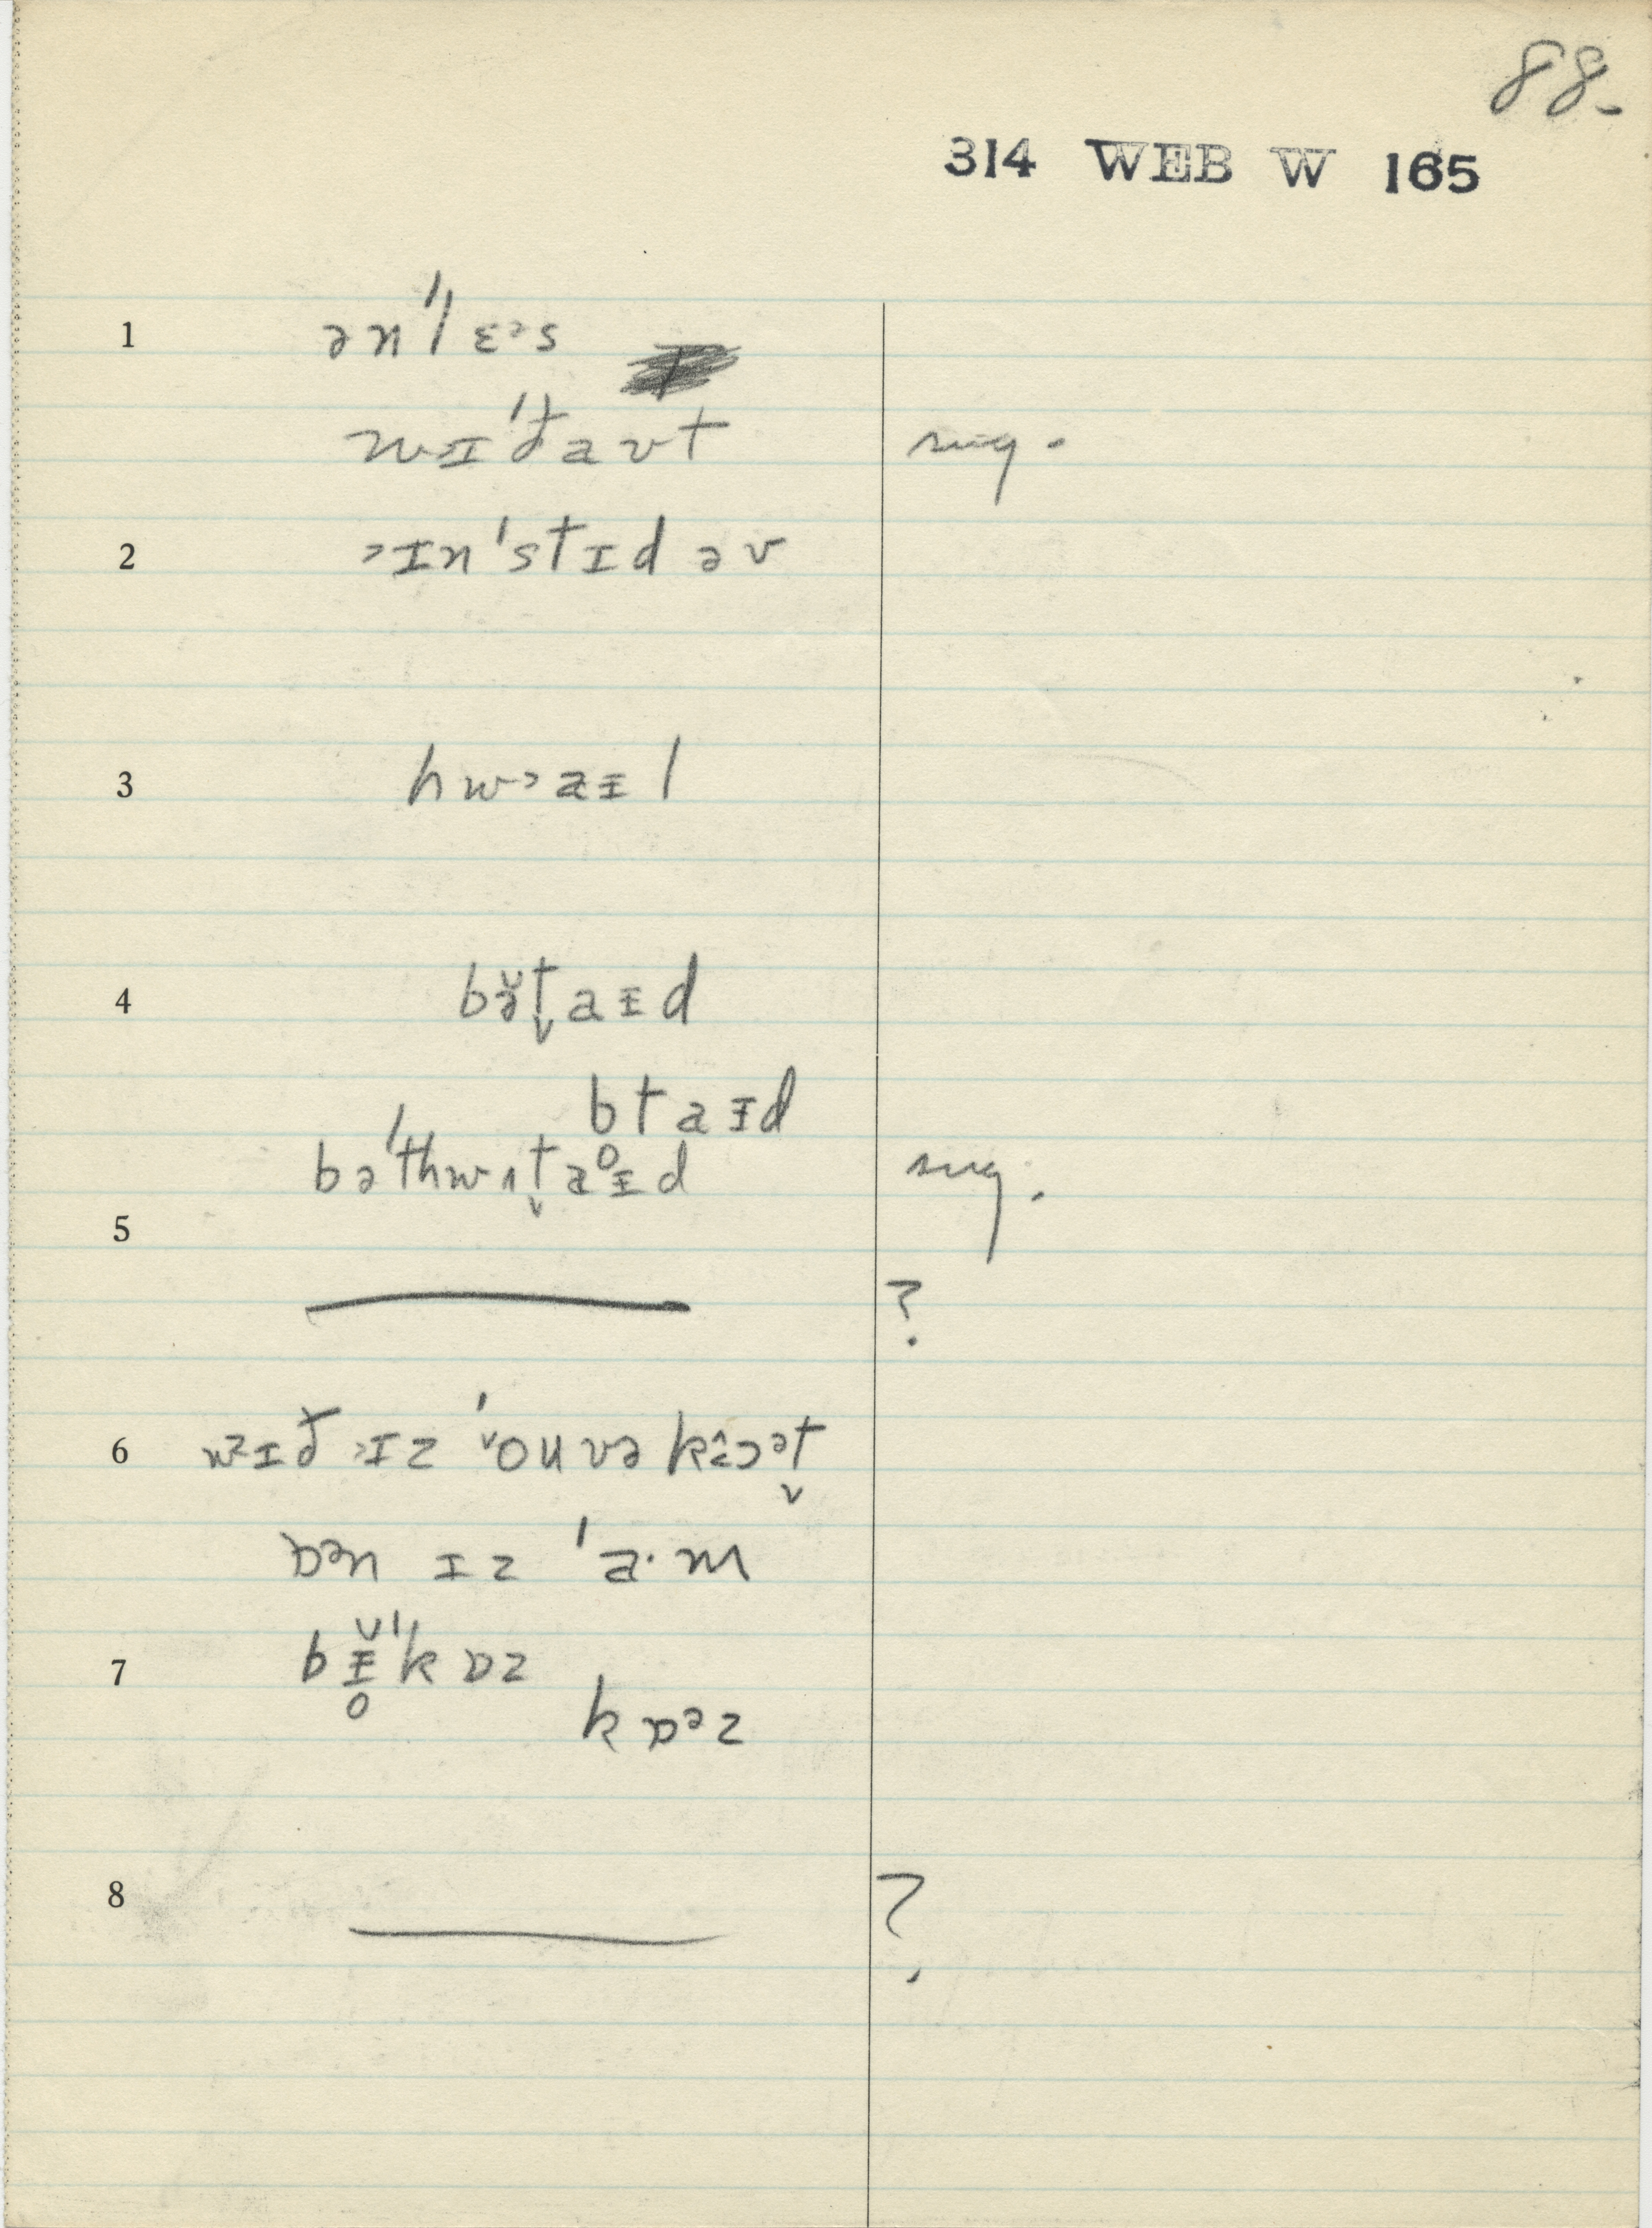 88-
314 WEB W 165
1 ən'lɛᵊs
wɪ'ðavt sug.
2 ˃ɪn'stɪd əv
3 hw˃aɪl
4 bə̆t̬aɪd
btaɪd
bə'thwɪt̬aɪd sug.
5
?
6 wɪð ˃ɪz 'oʊvəkɔət̬
ɒən ɪz 'a·m
7 bɪ̆'kɒz
kɒəz
8 ?